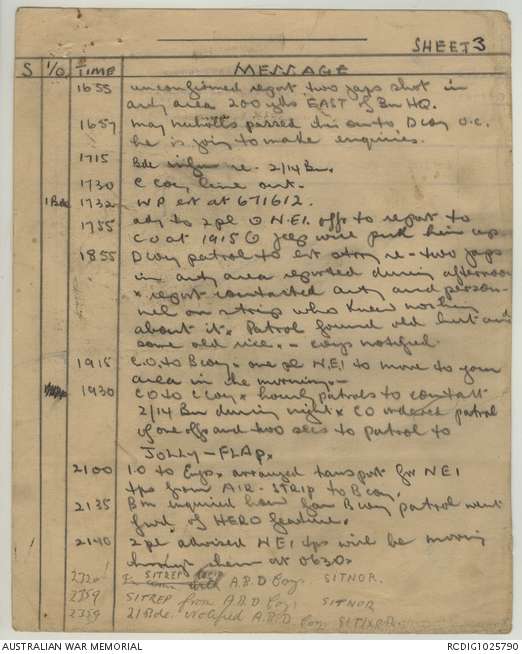 SHEET 3
S I/O TIME MESSAGE
1655 unconfirmed report two japs shot in
arty area 200 yds EAST of Bn HQ.
1657 maj Nicholls passed this on to D Coy O.C.
he is going to make enquiries.
1715 Bde re. 2/14 Bn.
1730 C Coy line out.
1 Bde 1732 WP est at 671612.
1755 adj to 2 pl N.E.I. offr to report to
CO at 1915 jeep will pick him up
1855 D Coy patrol to est story re - two japs
in arty area reported during afternoon
x report contacted arty and person-
nel on strip who knew nothing
about it x Patrol found old hut and
some old rice. - coys notified.
1915 C.O. to B Coy. one pl N.E.I to move to your
area in the morning.
1930 CO to C Coy x hourly patrols to contact
2/14 Bn during night x CO ordered patrol
of one offr and two secs to patrol to
JOLLY-FLAP x
2100 IO to x arranged transport for NEI
tps from AIR-STRIP to B Coy.
2135 Bn enquired how far B Coy patrol went
fwd of HERO feature.
2140 2 pl advised NEI tps will be moving
through them at 0630x
2320 SITREP A.B.D Coy SITNOR.
2359 SITREP from A.B.D Coy, SITNOR
2359 21 Bde. Notified A.B.D Coy
AUSTRALIAN WAR MEMORIAL RCDIG1025790